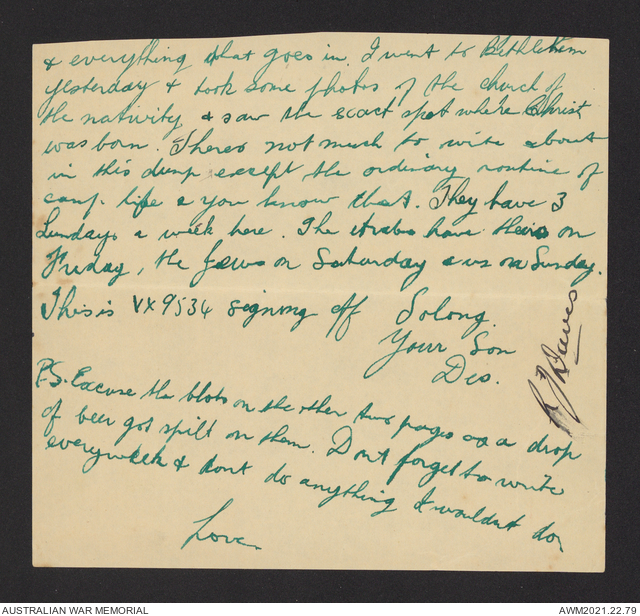 & everything that goes in. I went to Bethlehem
yesterday & took some photos of the church of
the nativity & saw the exact spot where Christ
was born. Theres not much to write about
in this dump except the ordinary routine of
camp life & you know that. They have 3
Sundays a week here. The Arabs have theirs on
Friday, the Jews on Saturday & us on Sunday.
This is VX9534 signing off Solong.
Your Son
Des.
P.S. Excuse the blots on the other two pages as a drop
of beer got spilt on them. Dont forget to write
everyweek & dont do anything I wouldnt do.
Love.
Davies
AUSTRALIAN WAR MEMORIAL
AWM2021.22.79